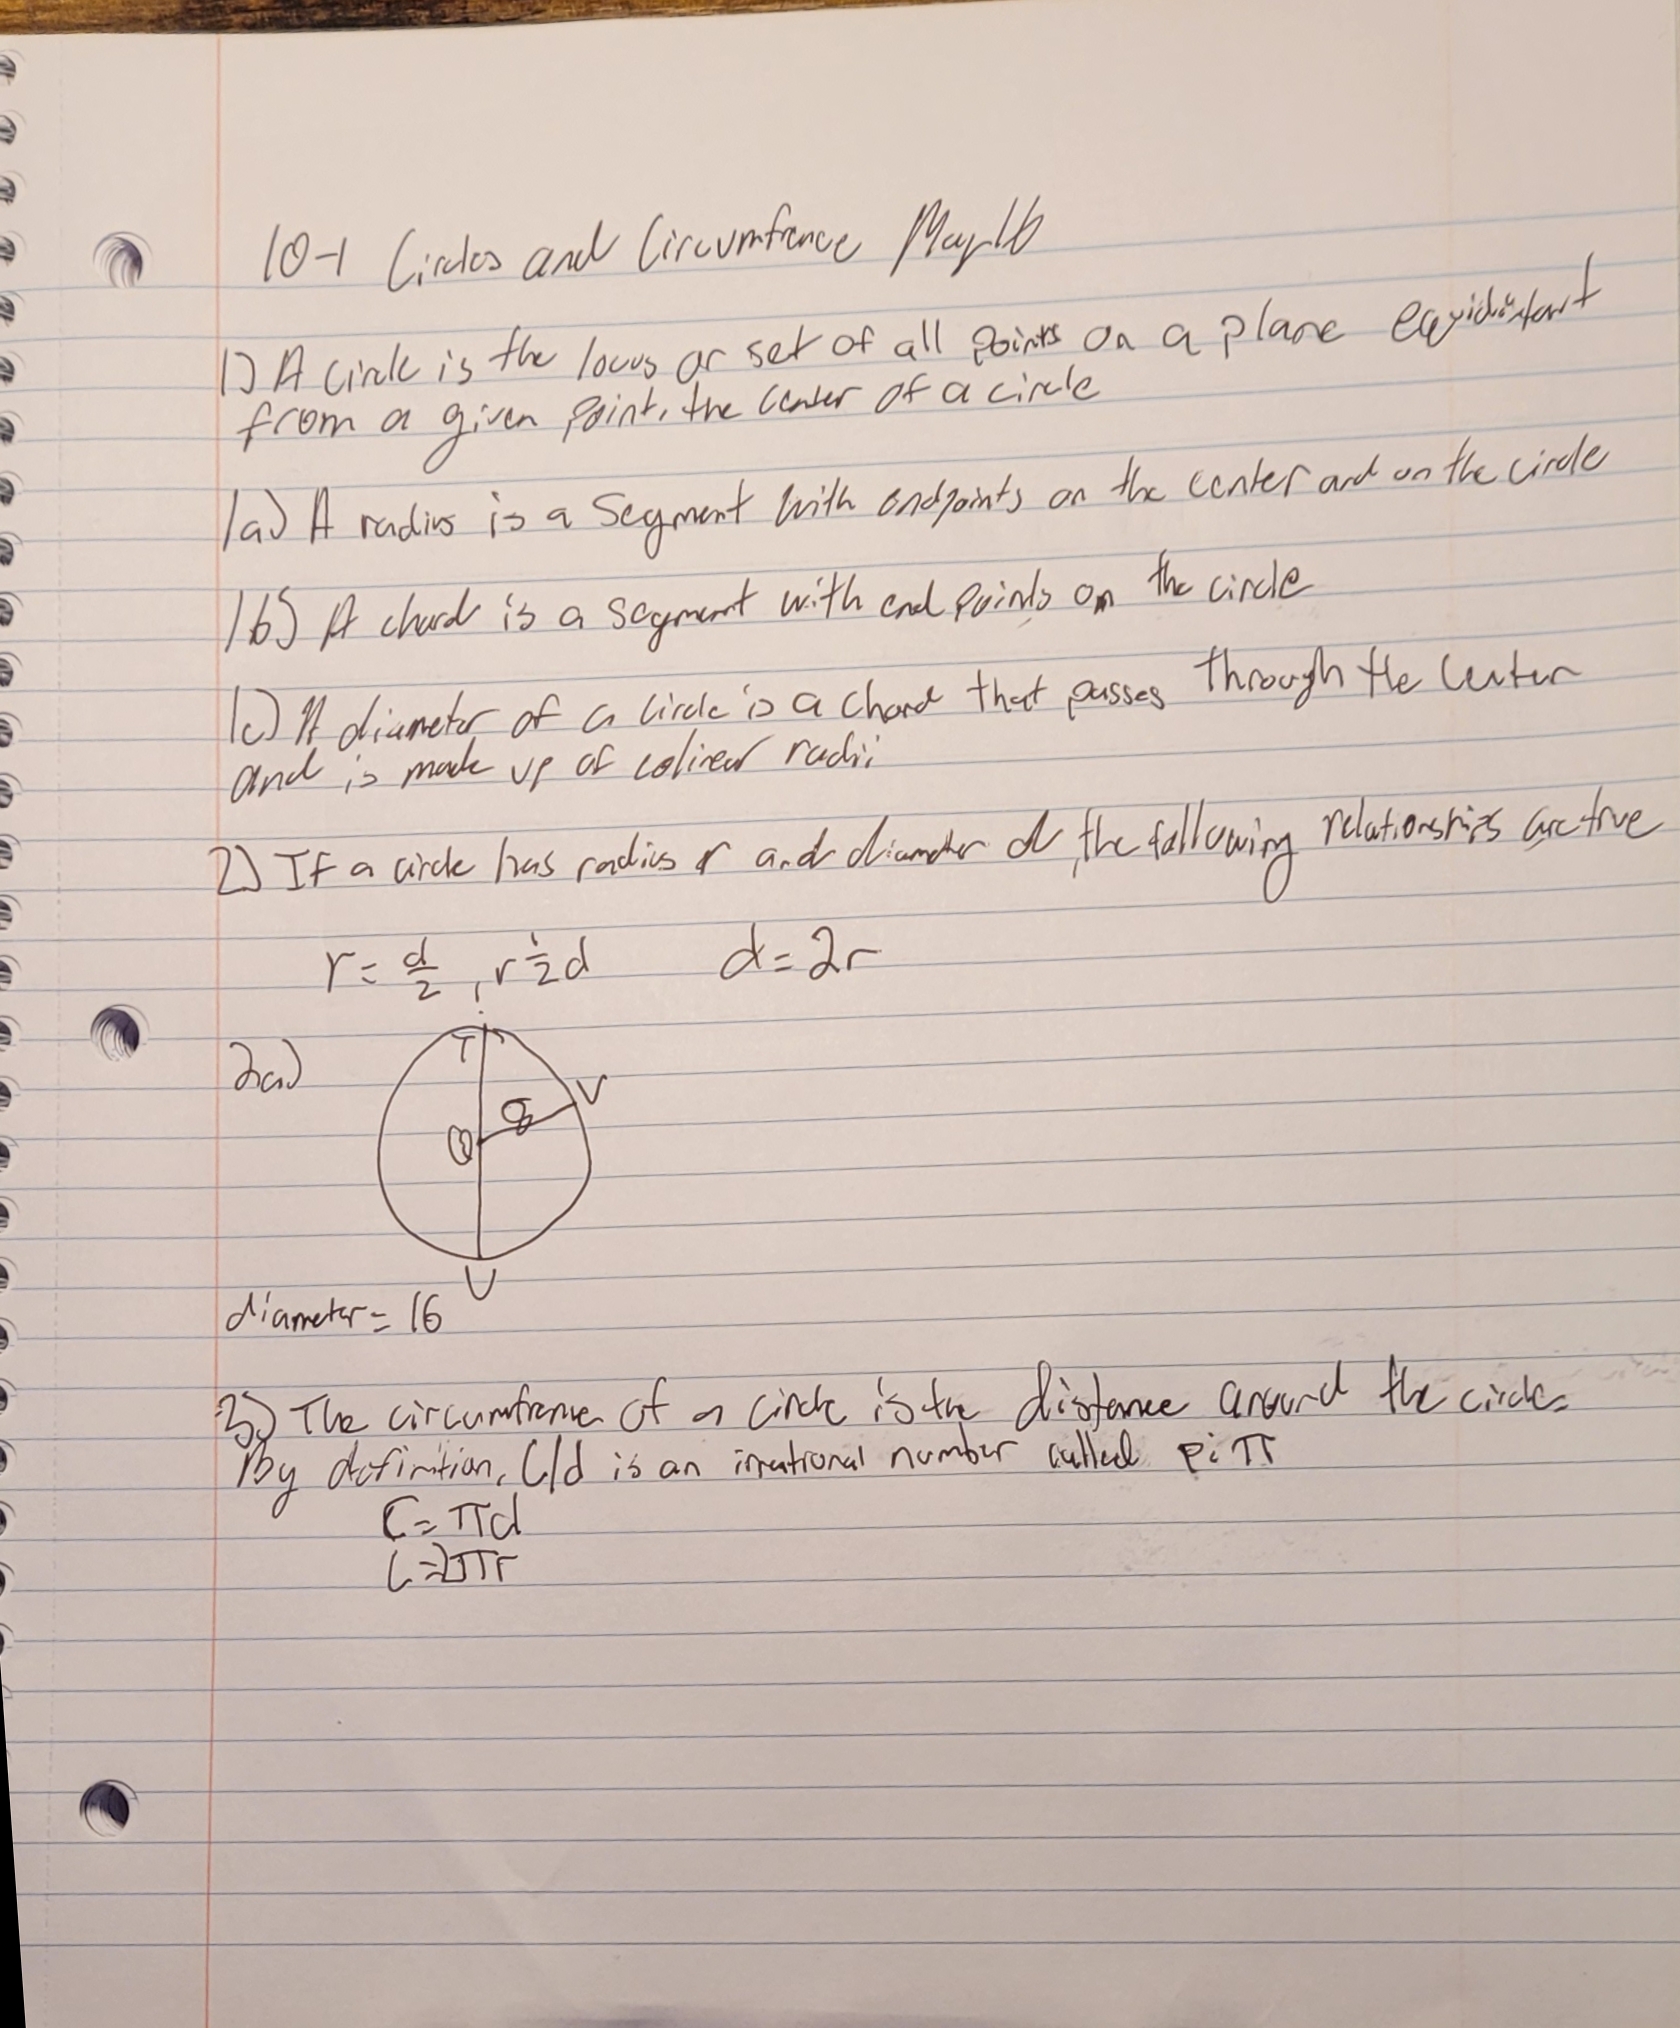 10-1 Circles and Circumfrence May 16
1) A circle is the locus or set of all points on a plane equidistant
from a given point, the center of a circle
1a) A radius is a segment with endpoints on the center and on the circle
1b) A chord is a segment with end points on the circle
1c) A diameter of a circle is a chord that passes through the center
and is made up of colinear radii
2) If a circle has radius r and diameter d, the following relationships are true
r = d/2, r ½ d d = 2r
2a)
T
V
8
Q
U
diameter = 16
3) The circumfrence of a circle is the distance around the circle.
By definition, C/d is an irrational number called pi π
C = πd
C = 2πr